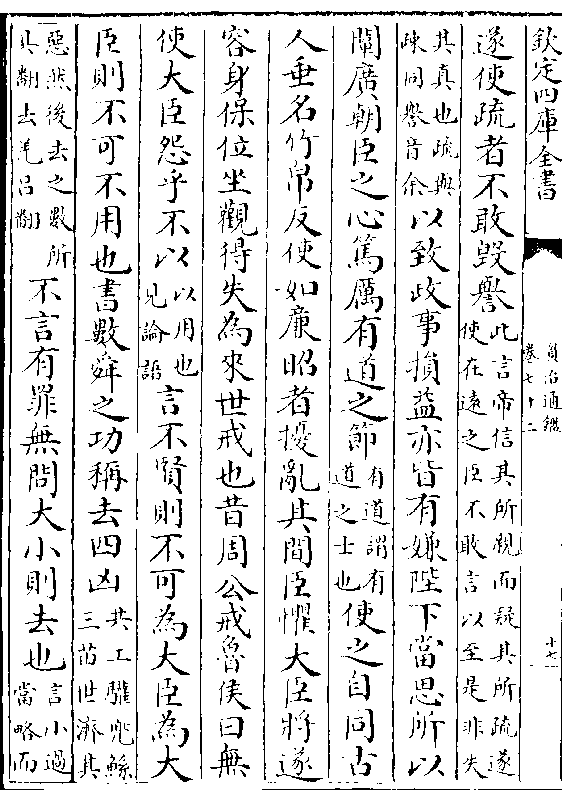 欽定四庫全書
資治通鑑
卷七十二
十七
遂使疏者不敢毁譽
此言帝信其所親而疑其所疏遂
使在遠之臣不敢言以至是非失
其真也疏與
疎同譽音余
以致政事損益亦皆有嫌陛下當思所以
闡廣朝臣之心篤厲有道之節
有道謂有
道之士也
使之自同古
人垂名竹帛反使如廉昭者擾亂其間臣懼大臣將遂
容身保位坐觀得失為來世戒也昔周公戒魯侯曰無
使大臣怨乎不以
以用也
見論語
言不賢則不可為大臣為大
臣則不可不用也書數舜之功稱去四凶
共工驩兜鯀
三苗世濟其
惡然後去之數所
具翻去羌呂翻
不言有罪無問大小則去也
言小過
當略而